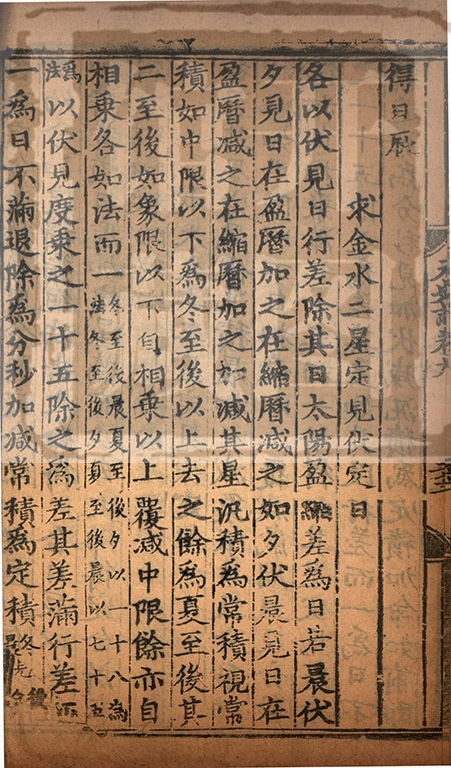 得日辰
求金水二星定見伏定日
各以伏見日行差除其日太陽盈縮差爲日若晨伏
夕見日在盈曆加之在縮曆减之如夕伏晨見日在
盈曆减之在縮曆加之加减其星汎積爲常積視常
積如中限以下爲冬至後以上去之餘爲夏至後其
二至後如象限以下自相乘以上覆减中限餘亦自
相乘各如法而一冬至後晨夏至後夕以一十八爲
法冬至後夕夏至後晨以七十五
爲法以伏見度乘之一十五除之爲差其差滿行差
一爲日不滿退除爲分秒加减常積爲定積